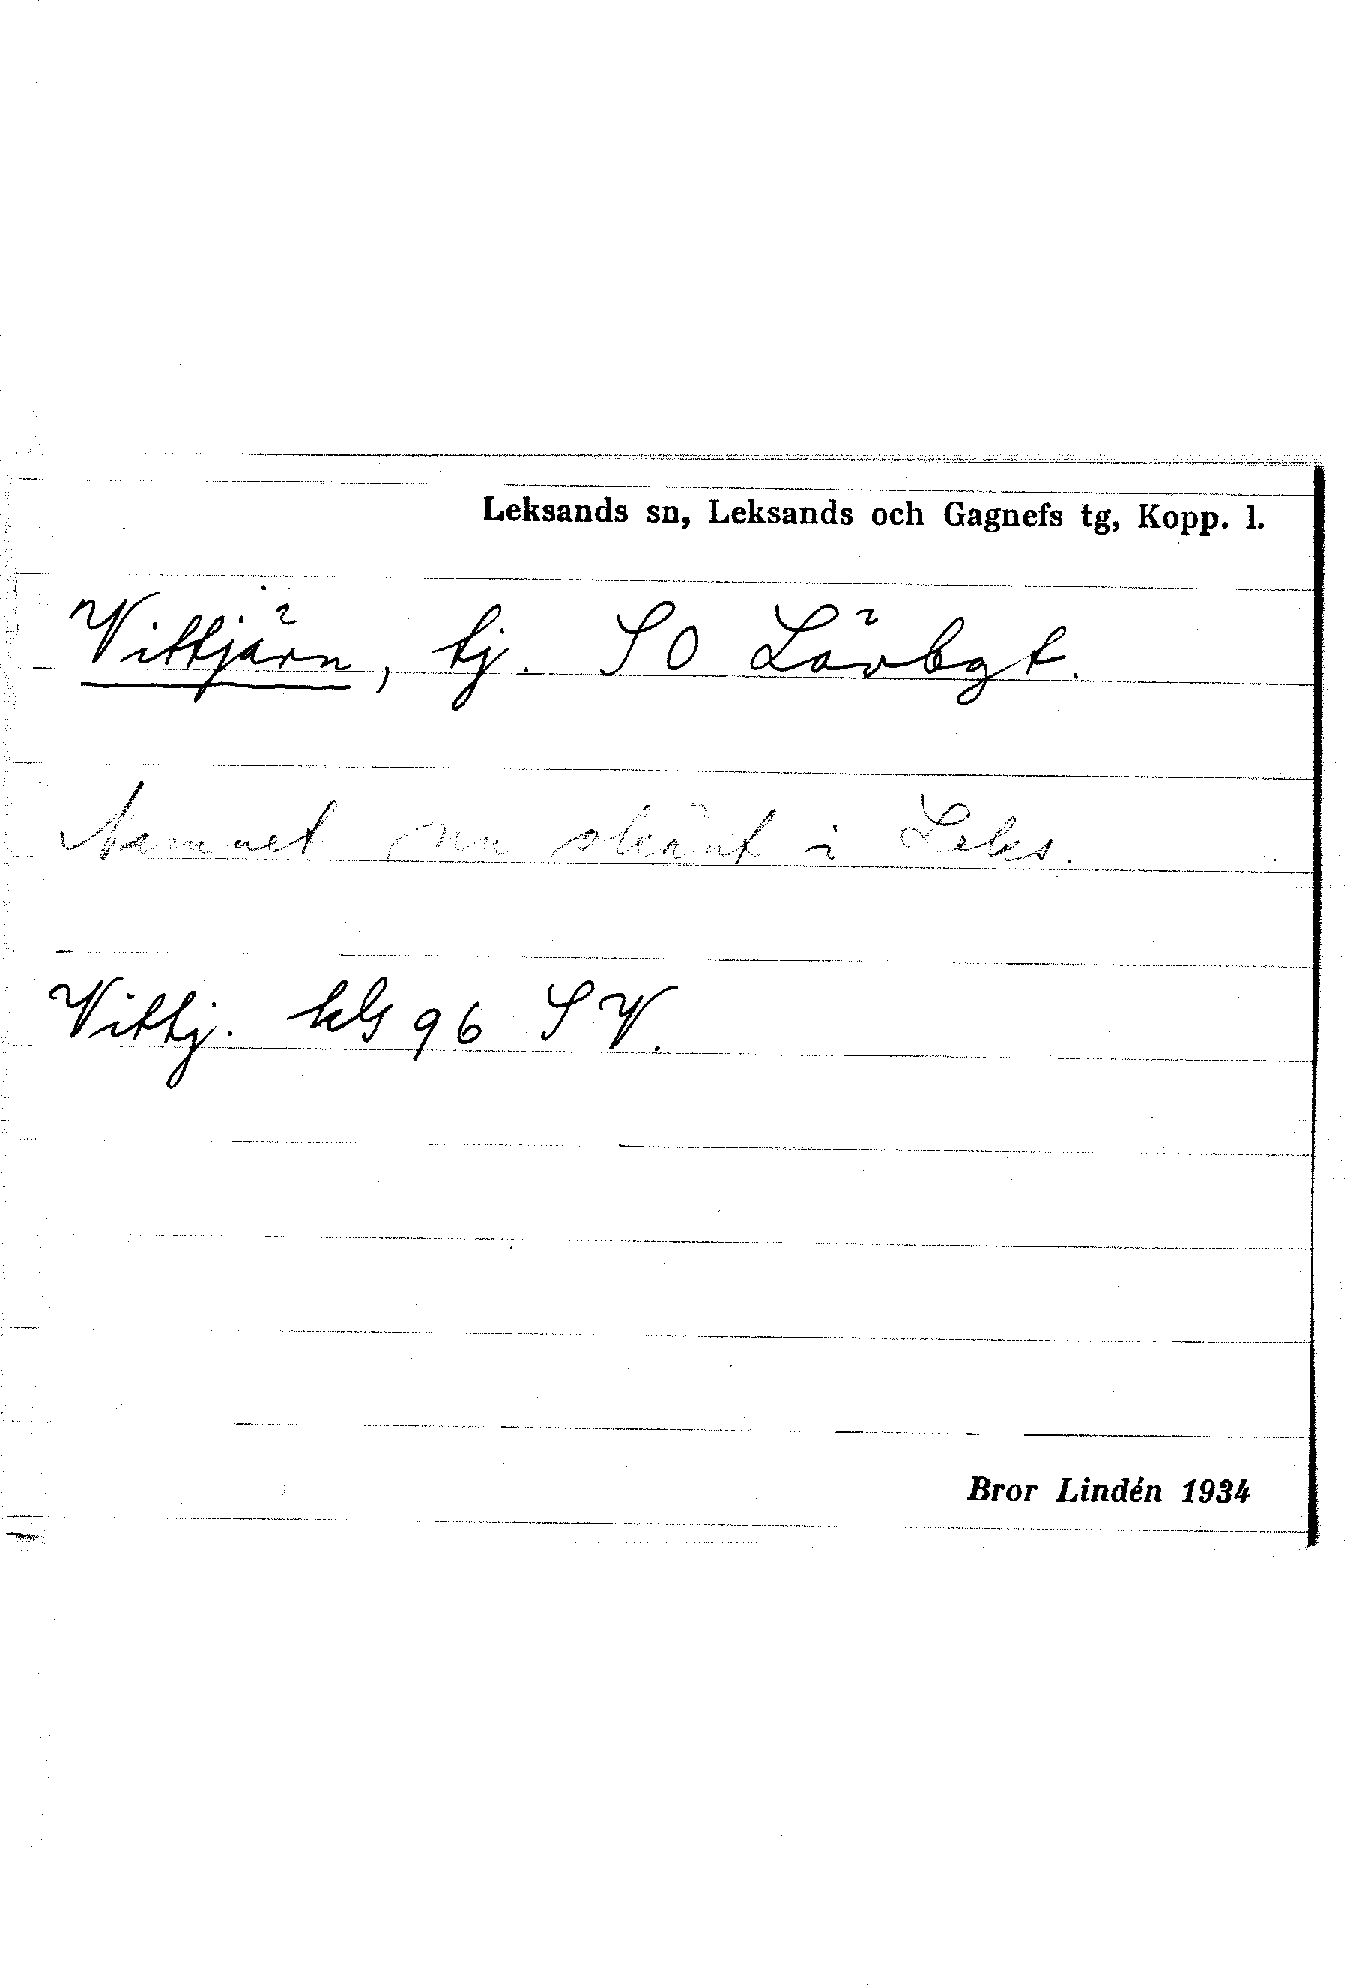 Leksands sn, Leksands och Gagnefs tg, Kopp. l.
Vittjärn, tj. SO Lövbgt.
Namnet nu okänt i Leks.
Vittj. kG 96 SV.
Bror Lindén 1934